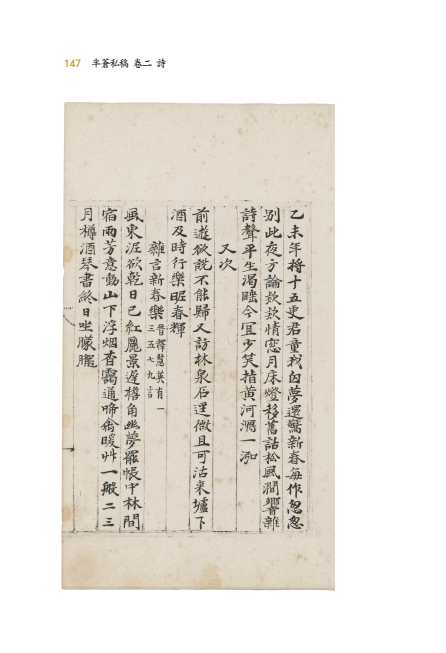 147 半蒼私稿 卷二 詩
乙未年将十五更君童我白夢還驚新春每作怱怱
別此夜方論欵欵情窓月床燈移舊話松風澗響雜
詩聲平生渴睡今宜少笑指黃河瀉一泓
又次
前遊欲說不能歸又訪林泉石逕微且可沽来壚下
酒及時行樂睚春輝
雜言新春樂 晉釋慧英有一三五七九言
風東泥欲乾日已紅麗景遲檐角幽夢羅帳中林間
宿雨芳意動山下浮烟杳靄通啼禽暖艸一般二三
月樽酒琴書終日坐朦朧